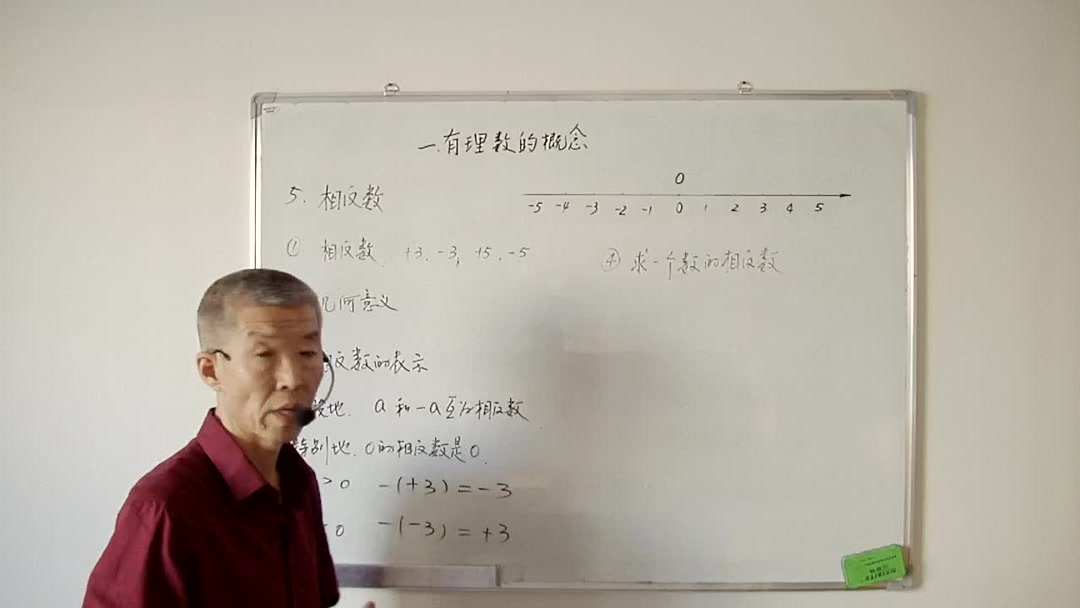 一.有理数的概念
5. 相反数
0
-5 -4 -3 -2 -1 0 1 2 3 4 5
① 相反数. +3, -3, +5, -5
④ 求一个数的相反数
几何意义
反数的表示
地. a和-a互为相反数
特别地. 0的相反数是0.
>0 -(+3)=-3
0 -(-3)=+3